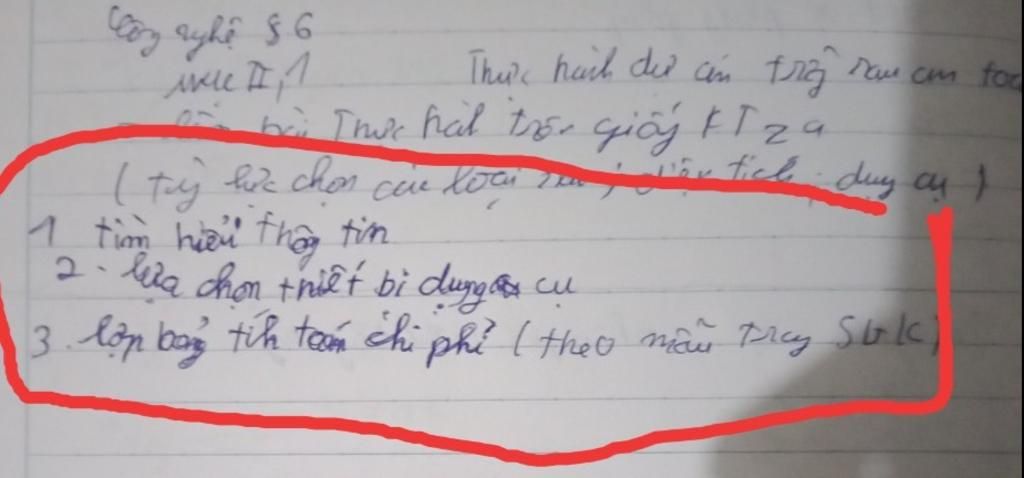 Công nghệ § 6
mục II, 1 Thực hành dự án trồng rau an toà
bài Thực hàh trên giấy KT
( tự lực chọn các loại diện tích, dụng cụ )
1 tìm hiểu thông tin
2. lựa chọn thiết bi dụng cụ
3. lập bảng tíh toán chi phí ( theo mẫu trog SGK)